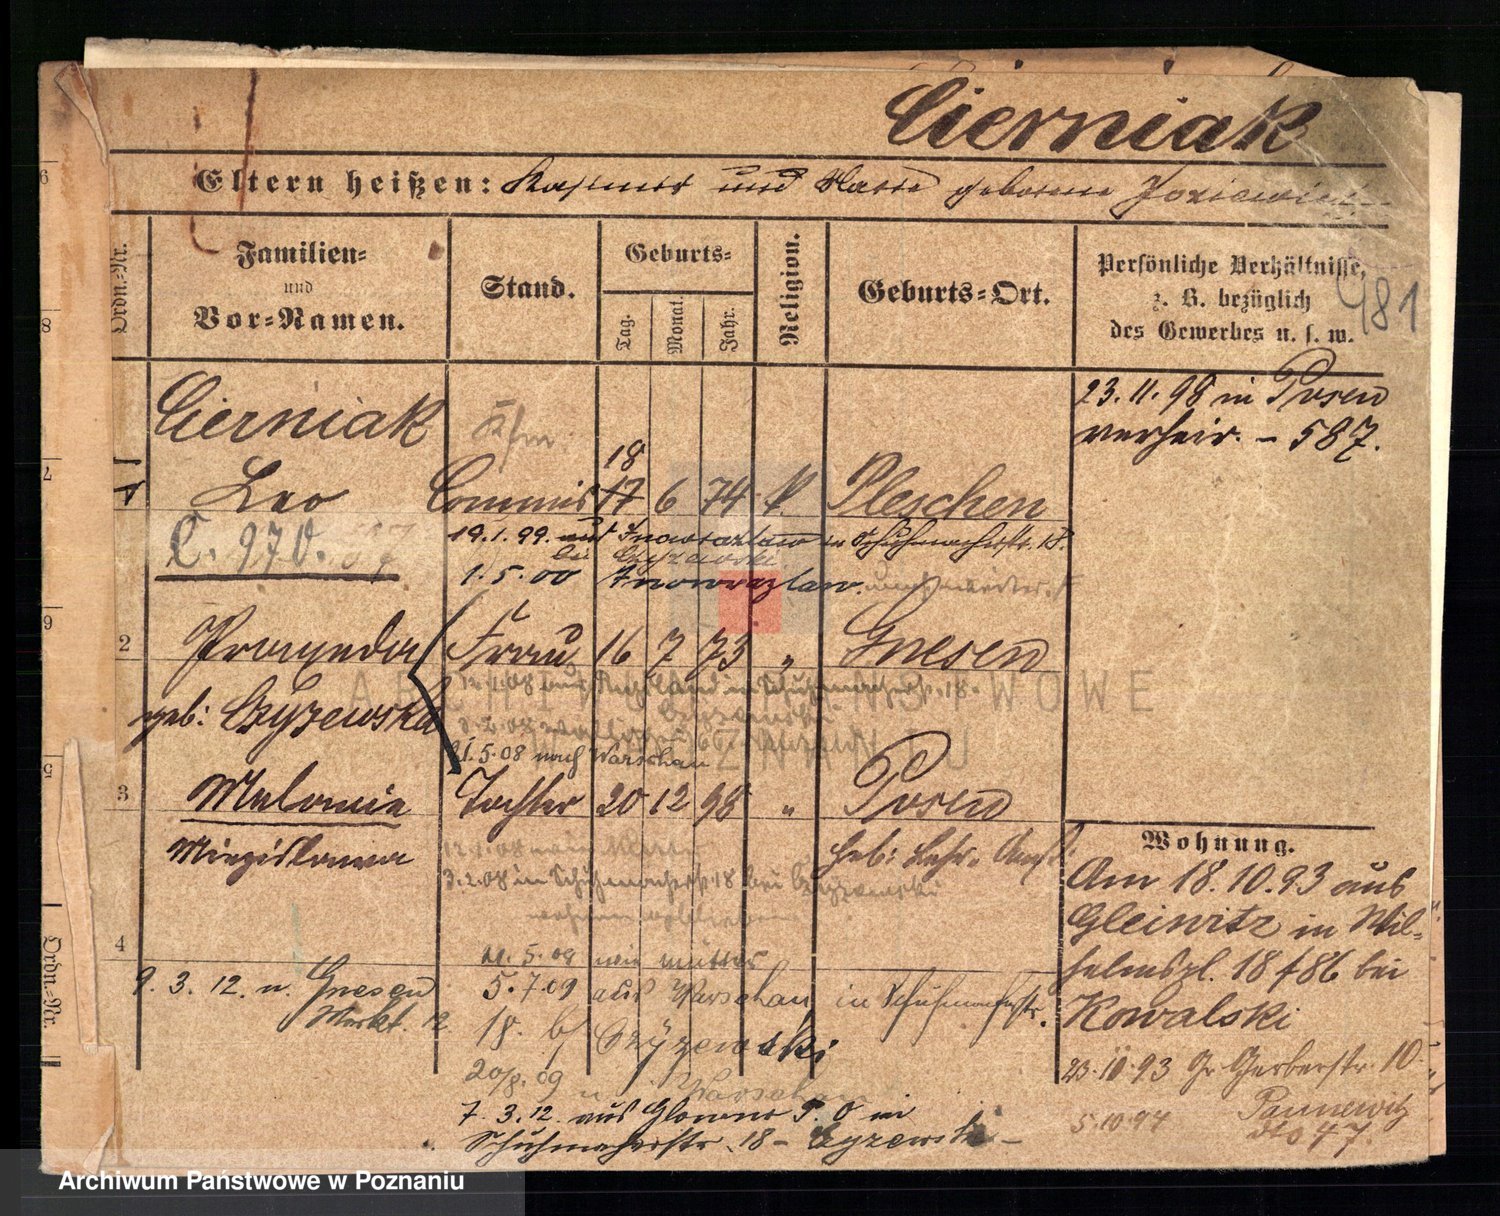 Cierniak
Eltern heißen: Kasimir und Marie geborene
Ordn.-Nr.
Familien-
und
Vor-Namen.
Stand.
Geburts-
Tag.
Monat.
Jahr.
Religion.
Geburts-Ort.
Persönliche Verhältnisse,
z. B. bezüglich
des Gewerbes u. s. w.
481
Cierniak
Kfm
23. 11. 98 in Posen
verheir. - 587.
1 Leo Commis 17 18 6 74 k. Pleschen
C. 970.
19. 1. 99. aus Inowrazlaw in Schuhmacherstr. 18.
bei Czyzewski
1. 5. 00 Inowrazlaw.
2 Praxeda Frau 16 7 73 " Gnesen
geb: Czyzewska
in Schuhmacherstr. 18.
Czyzewski
21. 5. 08 nach Warschau
3 Melanie Tochter 20 12 98 " Posen
Miezislawa
Wohnung.
3. 2. 08 in Schuhmacherstr. 18 bei Czyzewski
Am 18. 10. 93 aus
Gleiwitz in Wil-
helmspl. 18 f 86 bei
Kowalski
4
21. 5. 09 wie Mutter
9. 3. 12. n. Gnesen
Markt. 12.
5. 7. 09 aus Warschau in Schuhmacherstr.
18. b/ Czyzewski
20/8. 09 n. Warschau
23. 10. 93 Gr. Gerberstr. 10
7. 3. 12. aus Glowno P. O in
Schuhmacherstr. 18 - Czyzewski -
5. 10. 94 Pannewitz
47.
Ordn.-Nr.
ARCHIWUM PAŃSTWOWE
W POZNANIU
Archiwum Państwowe w Poznaniu